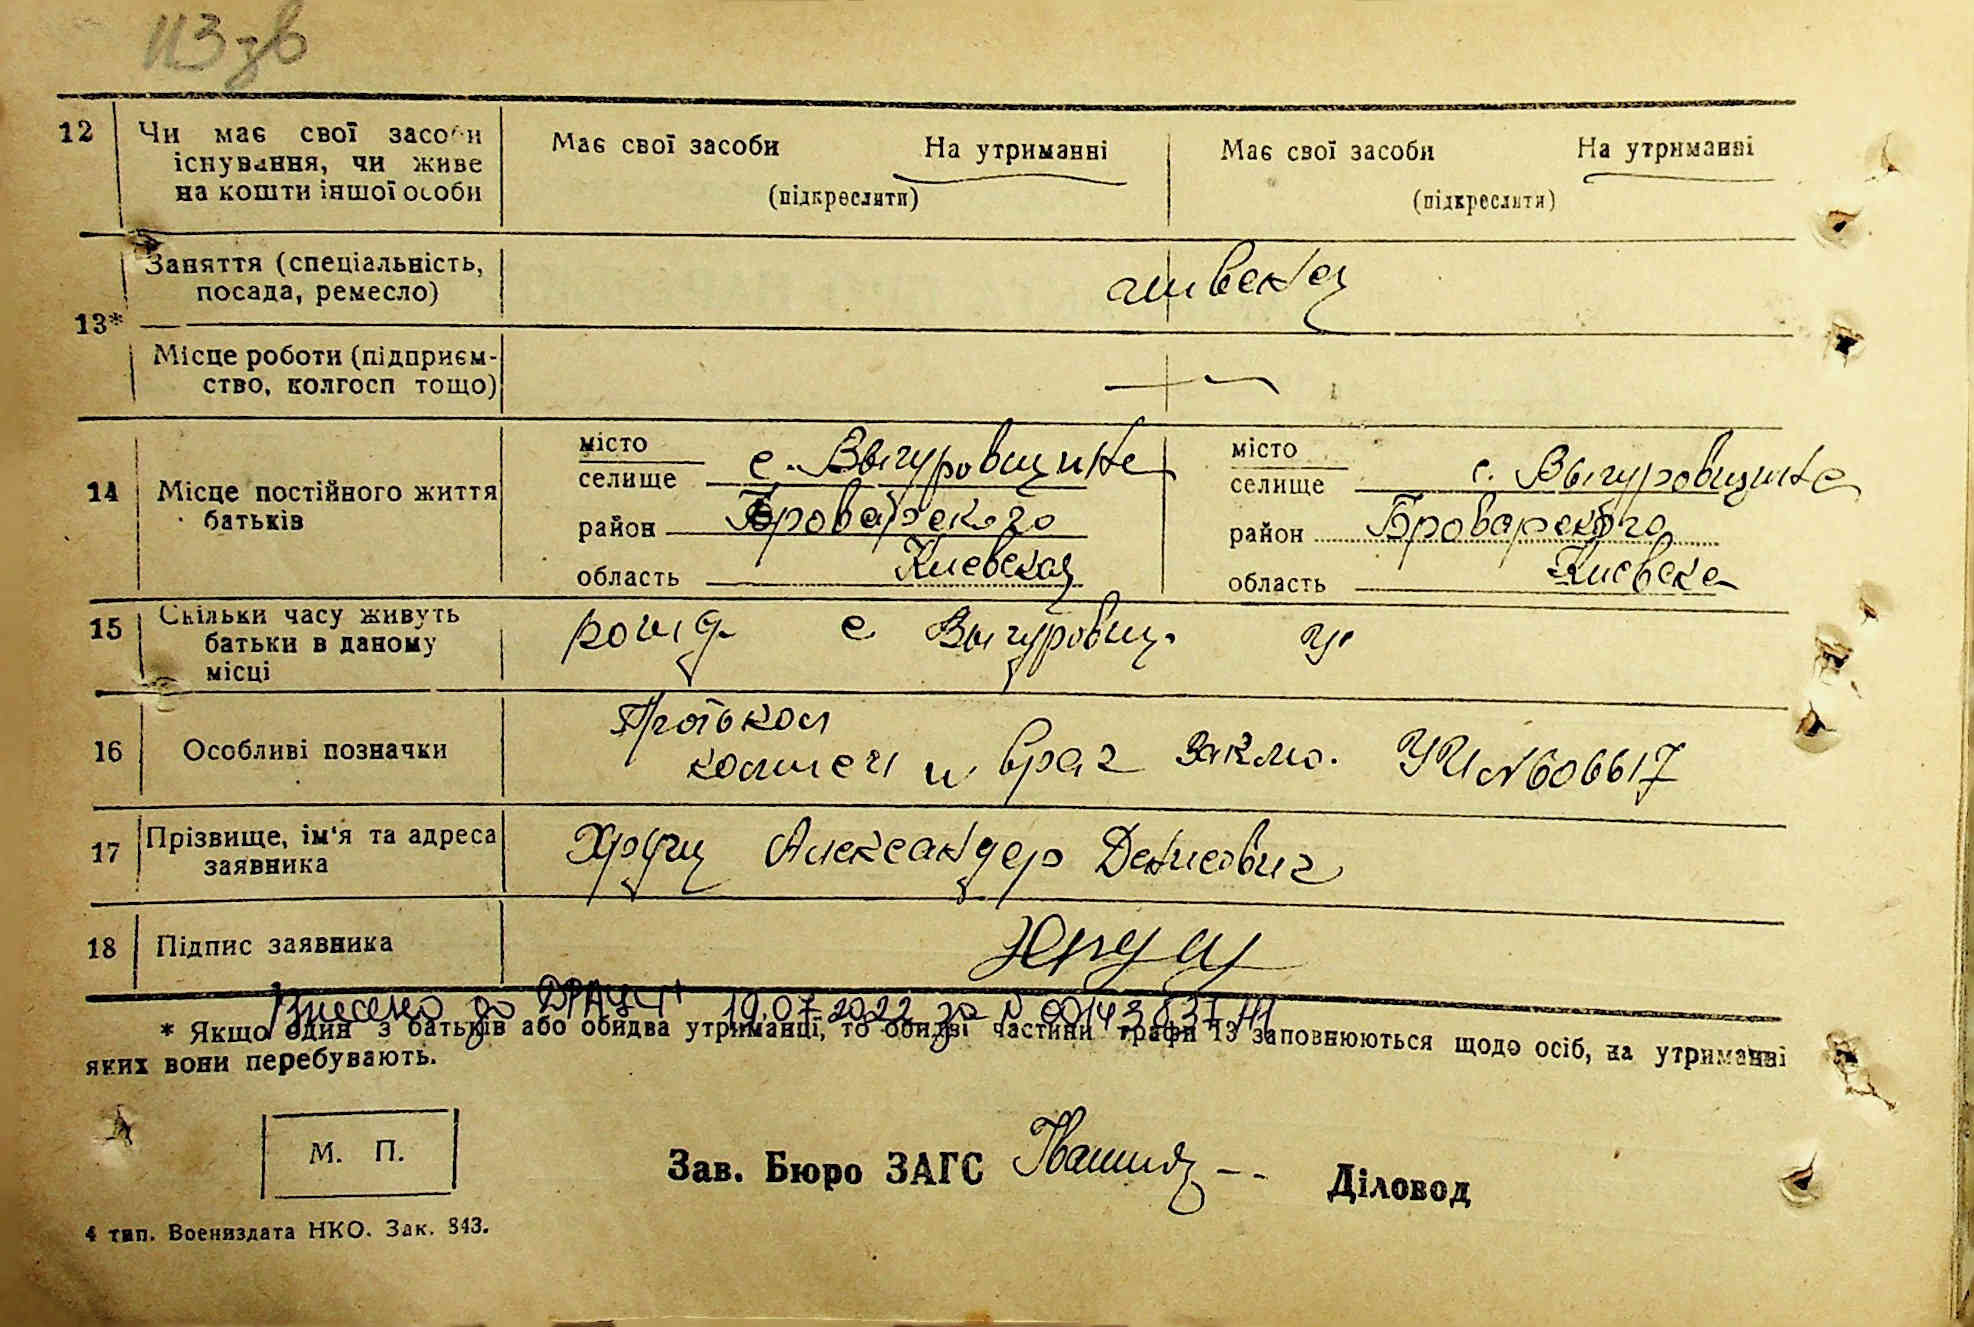 113 зв
12 Чи має свої засоби Має свої засоби На утриманні Має свої засоби На утриманні
існування, чи живе
на кошти іншої особи (підкреслити) (підкреслити)
Заняття (спеціальність,
посада, ремесло)
13*
Місце роботи (підприєм-
ство, колгосп тощо)
місто місто
селище с. Выгуровщине селище с. Выгуровщине
14 Місце постійного життя
батьків
район Броварского район Броварского
область Киевская область Киевска
15 Скільки часу живуть
батьки в даному
місці
рожд. с Выгуровщ.
Протокол
16 Особливі позначки и врач заклю. УЧ №606617
17 Прізвище, ім'я та адреса
заявника
Хрущ Александер Денисович
18 Підпис заявника Хрущ
Внесено до ДРАЦСГ 19.07.2022 за № 00143837141
* Якщо один з батьків або обидва утриманці, то обидві частини графи 13 заповнюються щодо осіб, на утриманні
яких вони перебувають.
М. П.
Зав. Бюро ЗАГС Діловод
4 тип. Воениздата НКО. Зак. 843.